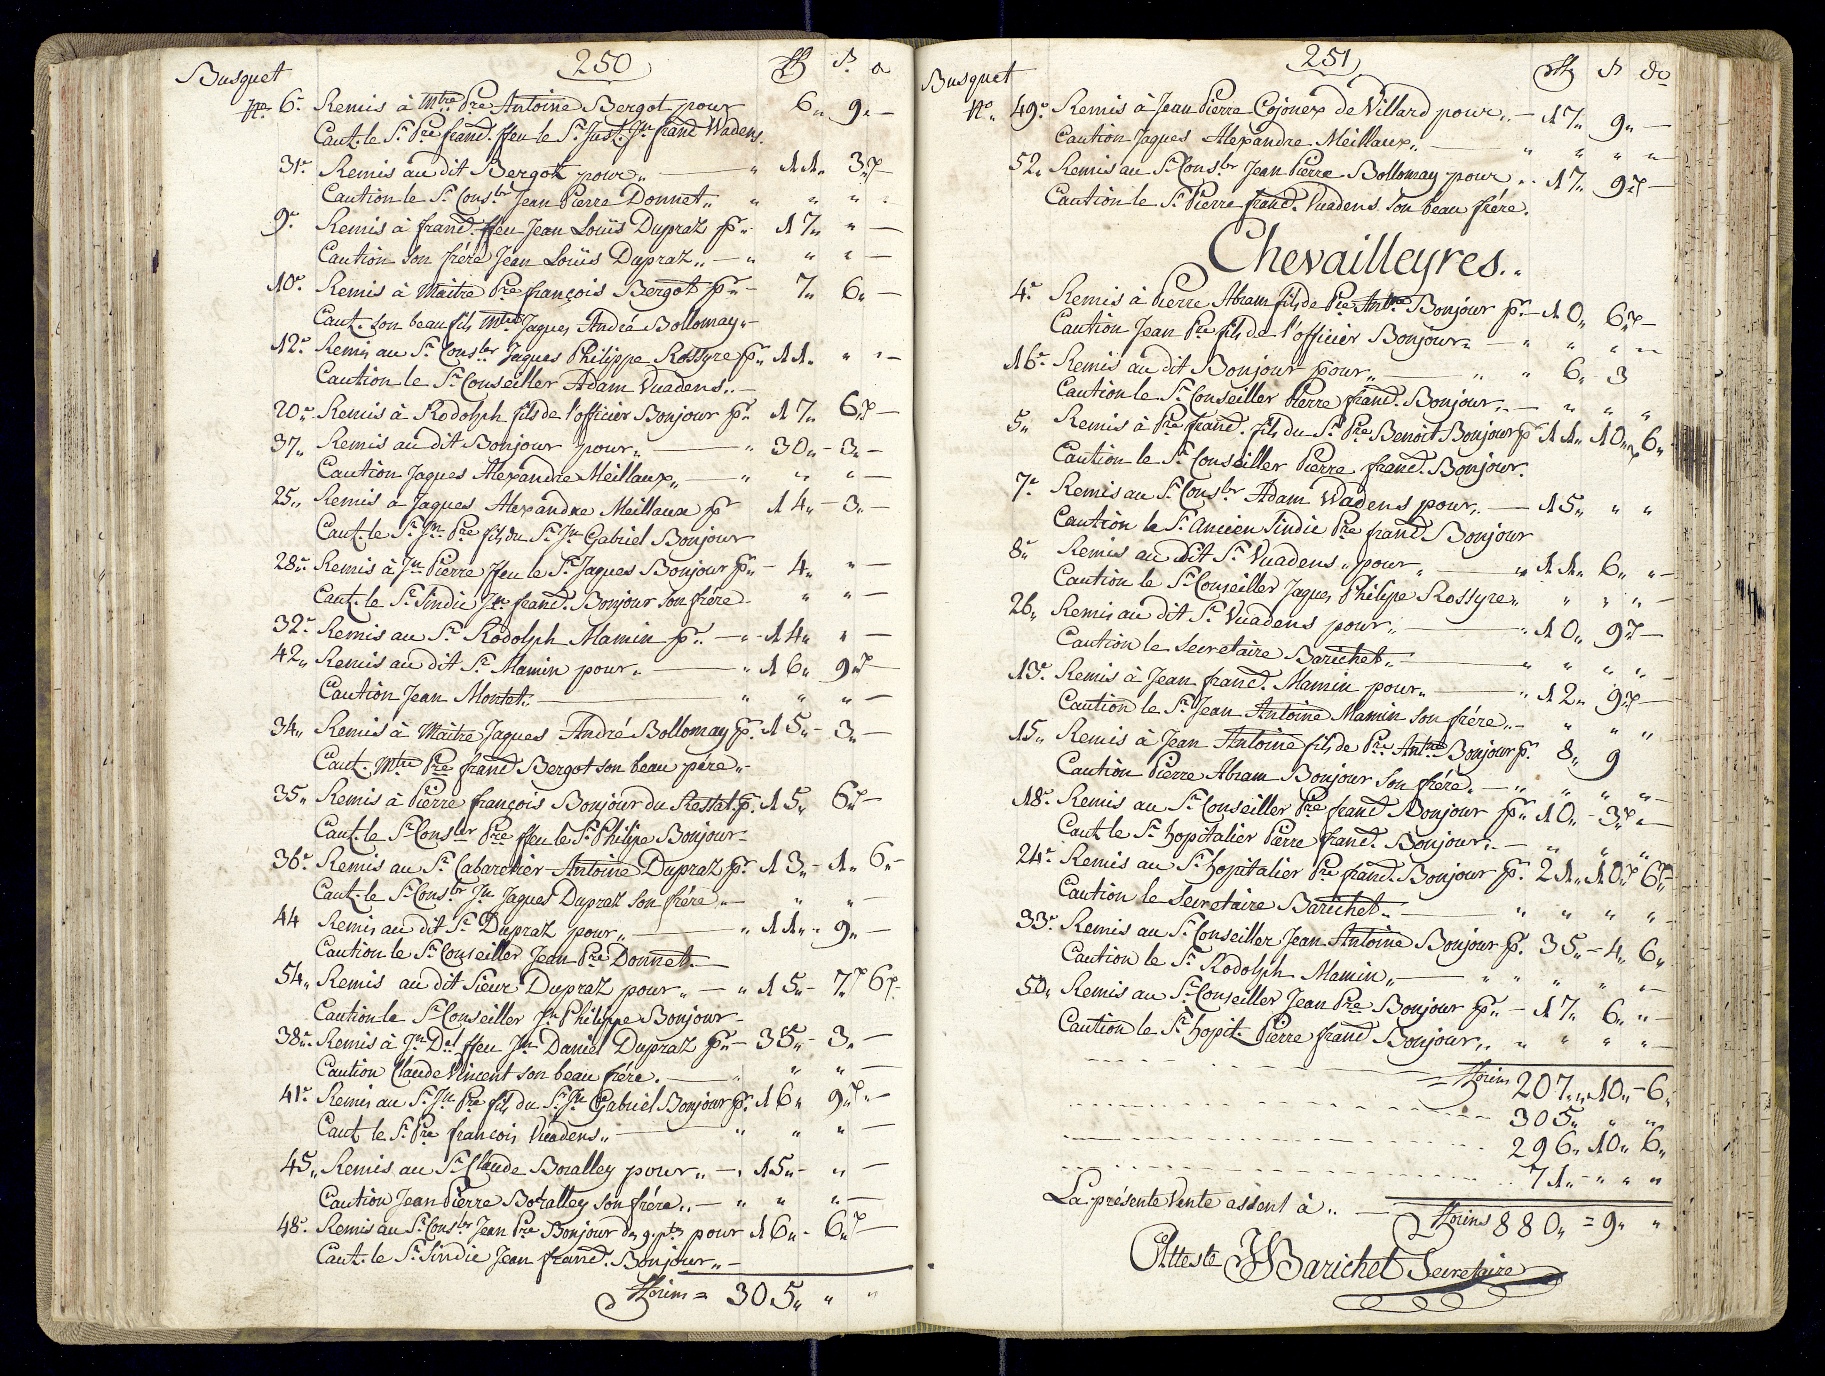 250
Busquet ff s. d
No 6. Remis à Mtre Pre Antoine Bergot pour 6„ 9„ —
Caut. le Sr. Pre franc. ffeu le Sr. Just. Jn franc Wadens.
31. Remis au dit Bergot pour„ — „ 11„ 3„ —
Caution le Sr. Conslr Jean Pierre Donnet„ „ „ „
9. Remis à franc. ffeu Jean Louïs Dupraz pr.. 17„ „ —
Caution Son frére Jean Louïs Dupraz„ — „ „ „ —
10. Remis à Maitre Pre françois Bergot pr.. — 7„ 6„ —
Caut. son beau fils Mtre Jaques André Bollomay„
12. Remis au Sr. Conslr Jaques Philippe Rossyre pr.. 11„ „ „ —
Caution le Sr. Conseiller Adam Vuadens„ —
20„ Remis à Rodolph fils de l'officier Bonjour pr. 17„ 6„ —
37„ Remis au dit Bonjour pour„ — „ 30„ – 3„ —
Caution Jaques Alexandre Meillaux„ — „ „ „ —
25„ Remis à Jaques Alexandre Meillaux pr 14„ – 3„ —
Caut. le Sr. Jn. Pre fils du Sr. Jn Gabriel Bonjour
28. Remis à Jn Pierre ffeu le Sr. Jaques Bonjour pr.. — 4„ „ —
Caut. le Sr. Sindic Jn franc. Bonjour Son frére. „ „ —
32. Remis au Sr. Rodolph Mamin pr.. — „ 14„ „ —
42„ Remis au dit Sr. Mamin pour„ — „ 16„ 9„ —
Caution Jean Montet„ — „ „ „ —
34„ Remis à Maitre Jaques André Bollomay pr. 15„ – 3„ —
Caut. Mtre Pre franc Bergot son beau pére„
35„ Remis à Pierre françois Bonjour du Restat. pr. 15„ 6„ —
Caut. le Sr. Conslr Pre ffeu le Sr. Philipe Bonjour
36. Remis au Sr. Cabaretier Antoine Dupraz pr. 13„ – 1„ 6„
Caut. le Sr. Conslr Jn Jaques Dupraz Son frére„ — „ „ —
44 Remis au dit Sr. Dupraz pour„ — „ 11„ 9„ —
Caution le Sr. Conseiller Jean Pre Donnet. —
54„ Remis au dit Sieur Dupraz pour„ — „ 15„ – 7„ 6
Caution le Sr. Conseiller Jn Philippe Bonjour
38. Remis à Jn Dl ffeu Jn Daniel Dupraz pr.. — 35„ – 3„ —
Caution Claude Vincent son beau frére. — „ „ „ —
41. Remis au Sr. Jn Pre fils du Sr. Jn Gabriel Bonjour pr. 16„ 9„ —
Caut le Sr. Pre françois Vuadens„ — „ „ „ —
45„ Remis au Sr. Claude Boralley pour„ — „ 15„ – „ —
Caution Jean Pierre Boralley son frére„ — „ „ „ —
48. Remis au Sr. Conslr Jean Pre Bonjour pour 16„ – 6„ —
Caut. le Sr. Sindic Jean franc. Bonjour„ —
fflorins = 305„ „ „
251
Busquet ff s dr
No„ 49. Remis à Jean Pierre Cojonex de Villard pour„ — 17„ 9„ —
Caution Jaques Alexandre Meillaux„ — „ „ „ „
52„ Remis au Sr. Conslr Jean Pierre Bollomay pour„ 17„ 9„ —
Caution le Sr. Pierre franc. Vuadens Son beau frére.
Chevailleyres.„
4. Remis à Pierre Abram fils de Pre Antne Bonjour pr.. — 10„ 6„ —
Caution Jean Pre fils de l'officier Bonjour„ — „ „ „ „
16. Remis au dit Bonjour pour„ — „ „ 6„ 3
Caution le Sr. Conseiller Pierre franc. Bonjour„ — „ „ „
5„ Remis à Pre franc. fils du Sr. Pre Benoit Bonjour pr 11„ 10„ 6„
Caution le Sr. Conseiller Pierre franc. Bonjour.
7. Remis au Sr. Conslr Adam Wadens pour„ — 15„ „ „
Caution le Sr. ancien Sindic Pre franc Bonjour
8. Remis au dit Sr. Vuadens„ pour„ — „ 11„ 6„ „ —
Caution le Sr. Conseiller Jaques Philipe Rossyre„ „ „ „ —
26„ Remis au dit Sr. Vuadens pour„ — „ 10„ 9„ —
Caution le Secretaire Barichet„ — „ „ „ „
13. Remis à Jean franc. Mamin pour„ — „ 12„ 9„ —
Caution le Sr. Jean Antoine Mamin Son frére„ — „ „ „
15„ Remis à Jean Antoine fils de Pre Antne Bonjour pr. 8„ 9
Caution Pierre Abram Bonjour Son frére„ — „ „ „ „ —
18. Remis au Sr. Conseiller Pre franc Bonjour pr.. 10„ – 3„ —
Caut. le Sr. hopitalier Pierre franc. Bonjour„ — „ „ „
24. Remis au Sr. hopitalier Pre franc. Bonjour pr. 21„ 10„ 6„
Caution le Secretaire Barichet„ — „ „ „ „
33. Remis au Sr. Conseiller Jean Antoine Bonjour pr. 35„ – 4„ 6„
Caution le Sr. Rodolph Mamin„ — „ „ „ „ „ —
50„ Remis au Sr. Conseiller Jean Pre Bonjour pr.. — 17„ 6„ „ —
Caution le Sr. hopit. Pierre franc Bonjour„ „ „ „ „ —
= fflorins 207„ „ 10„ – 6„
305„ „ „
296„ 10„ 6„
71„ – „ „ „
La présente Vente assent à„ — fflorins 880„ = 9„ „
Atteste JJ Barichet Secretaire